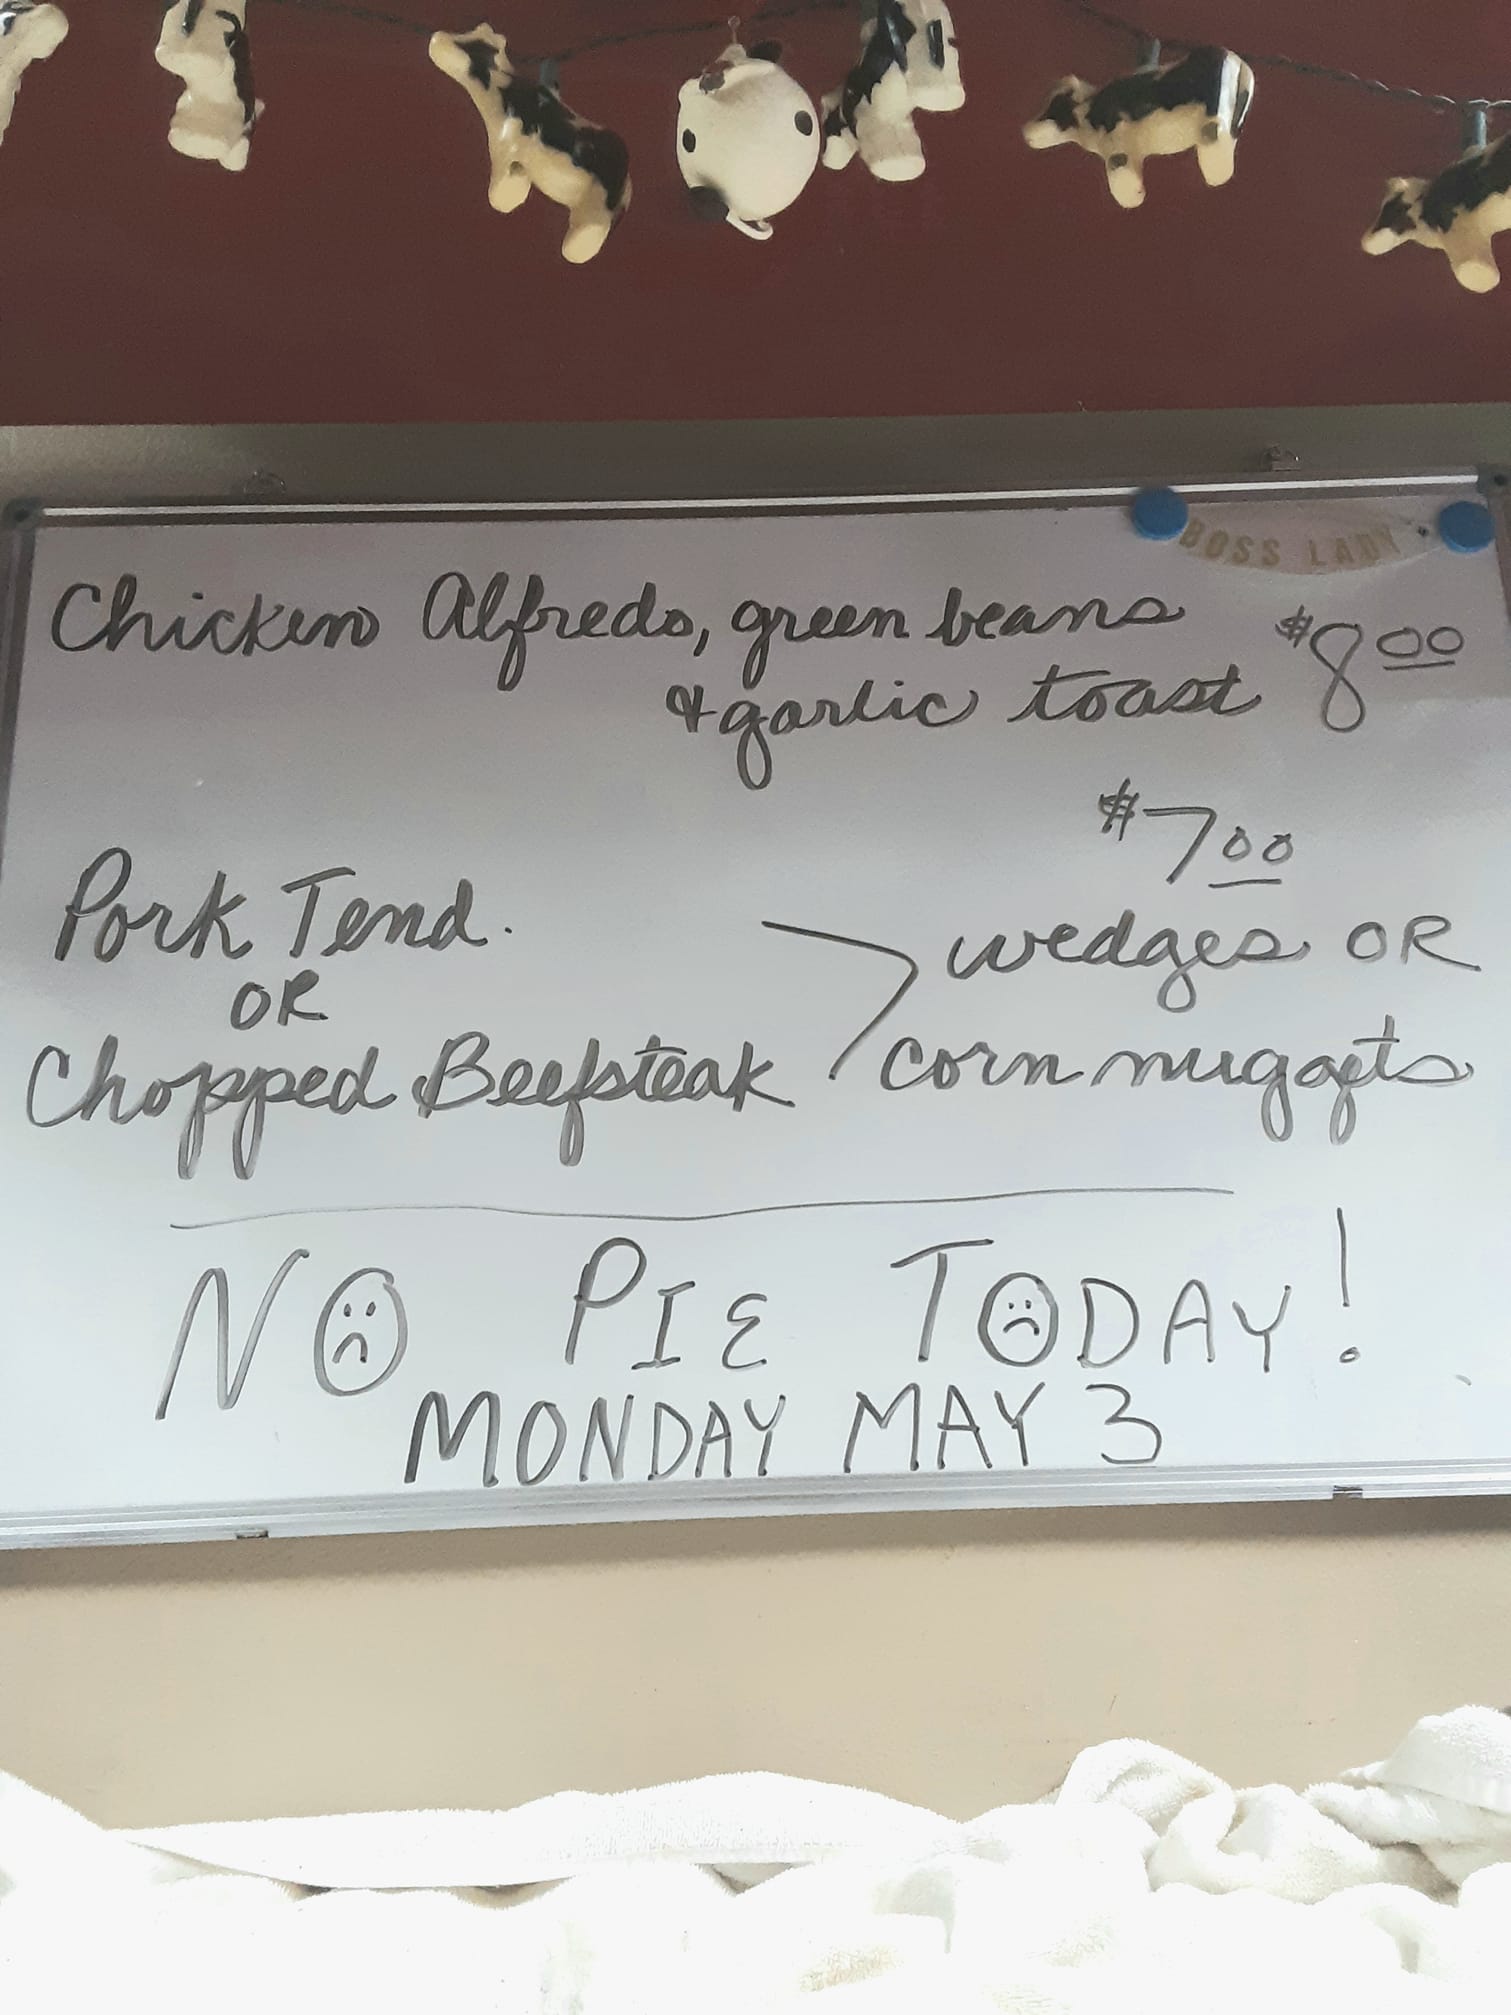 BOSS LADY
Chicken Alfredo, green beans $8.00
& garlic toast
$7.00
Pork Tend. wedges OR
OR
Chopped Beefsteak corn nuggets
NO PIE TODAY!
MONDAY MAY 3